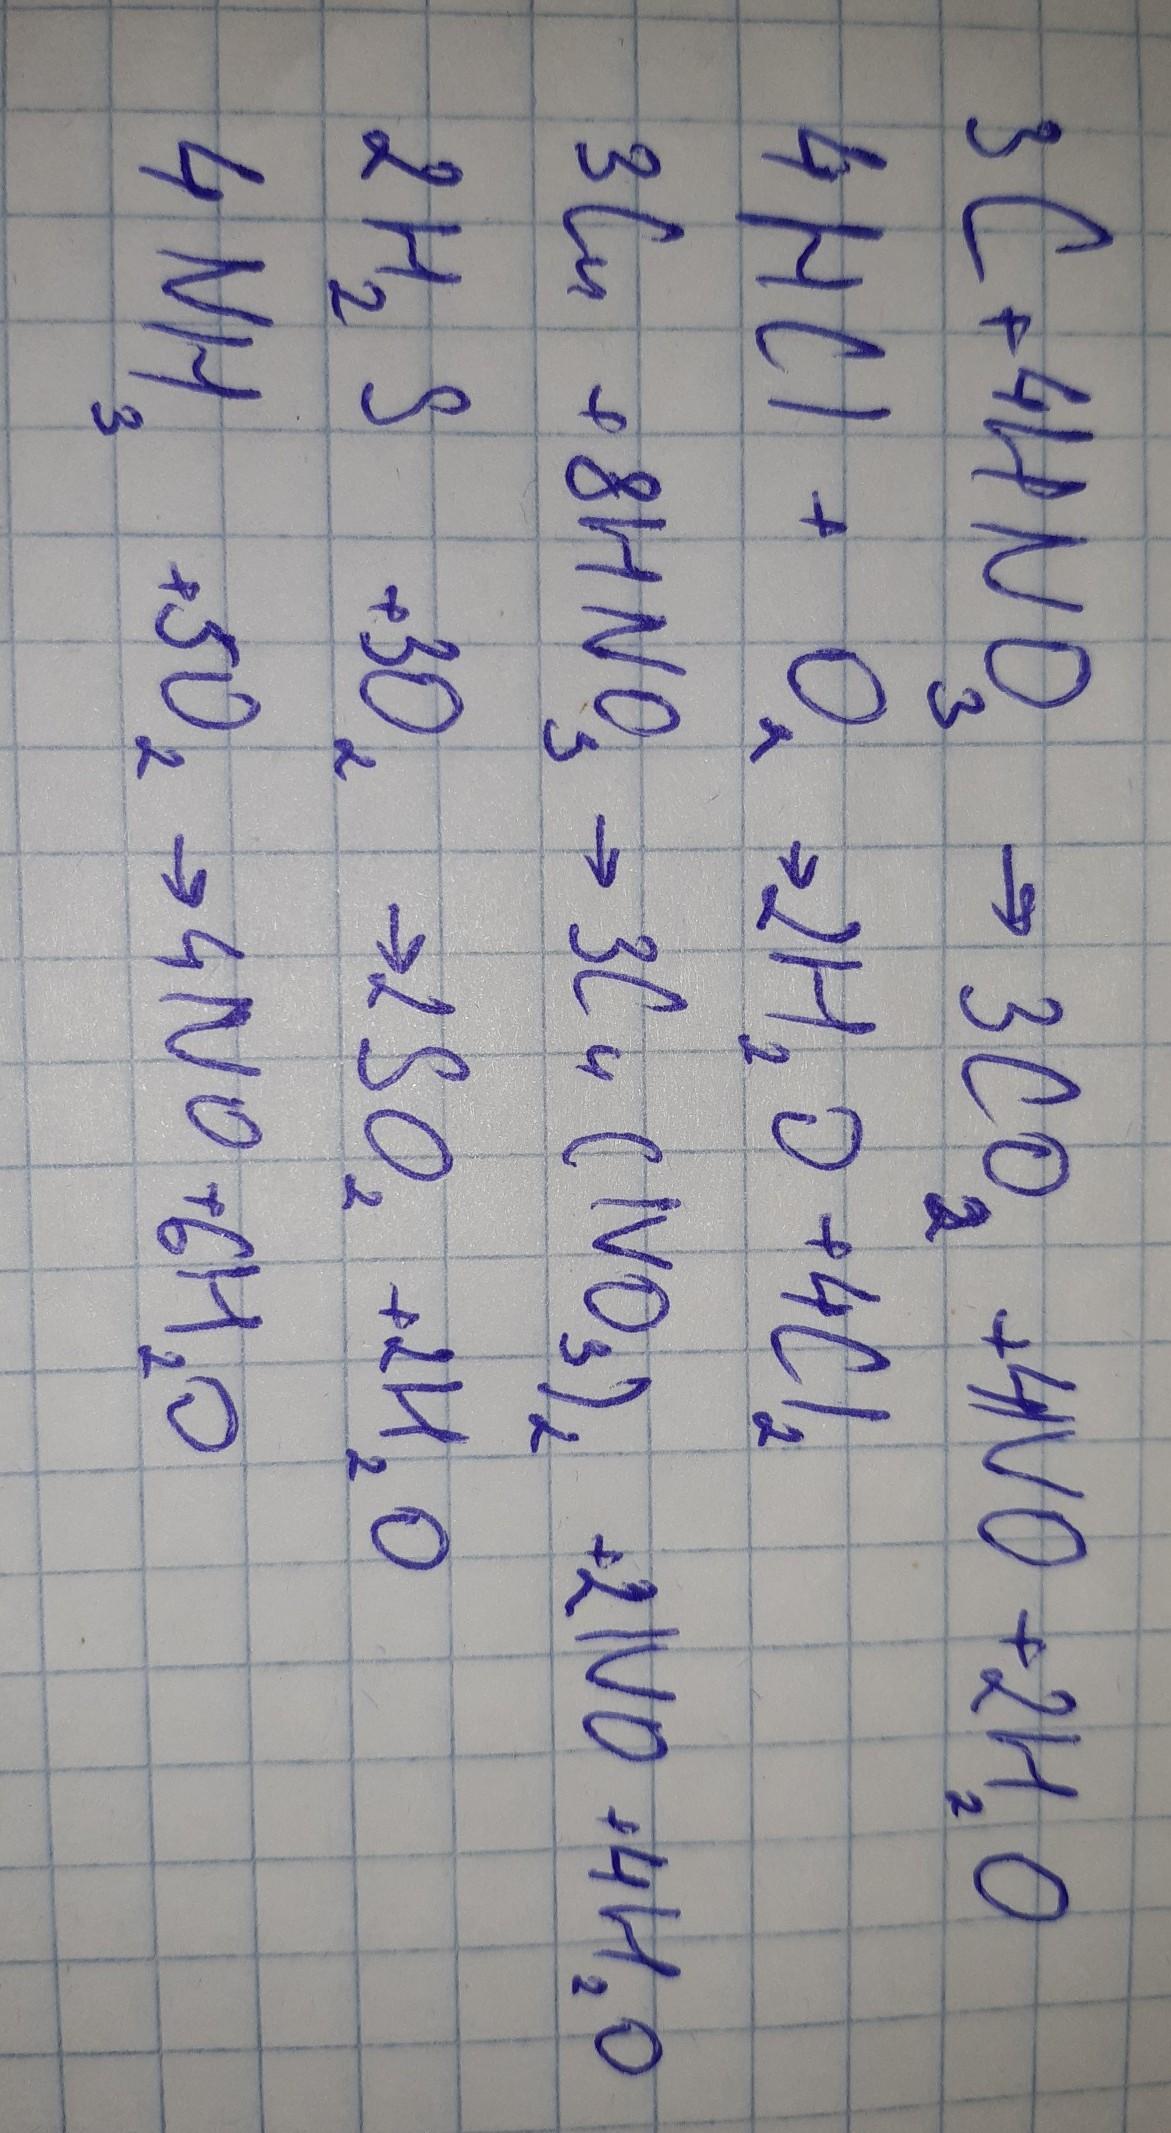 3C + 4HNO₃ → 3CO₂ + 4NO + 2H₂O
4HCl + O₂ → 2H₂O + 4Cl₂
3Cu + 8HNO₃ → 3Cu(NO₃)₂ + 2NO + 4H₂O
2H₂S + 3O₂ → 2SO₂ + 2H₂O
4NH₃ + 5O₂ → 4NO + 6H₂O